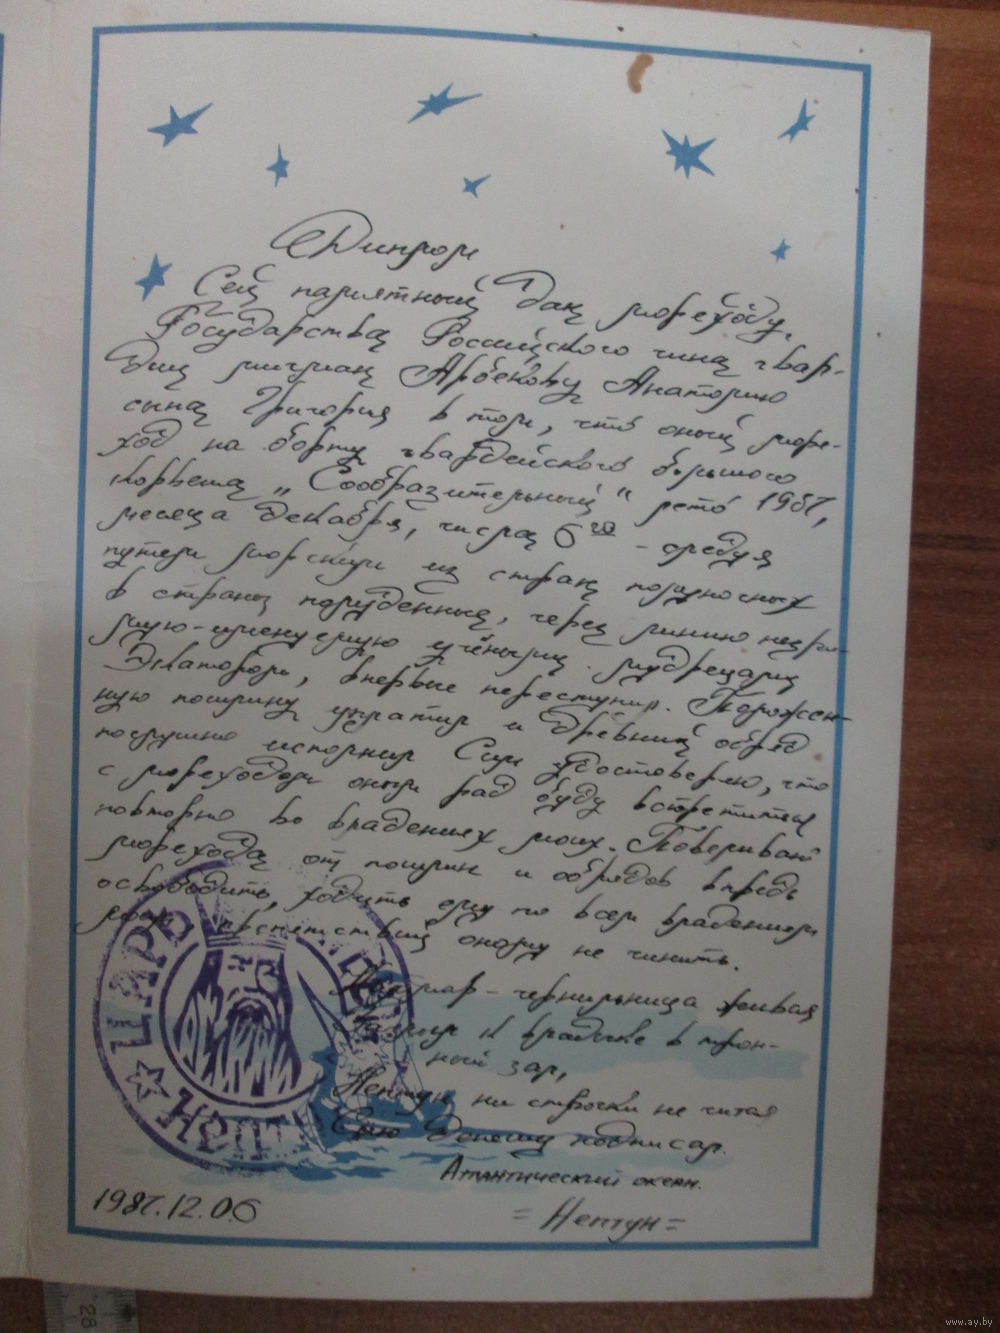 Диплом
Сей памятный дан мореходу
Государства Российского чина гвар-
дии мичман Арбекову Анатолию
сына Григория в том, что оный море-
ход на борту гвардейского большого
корвета „Сообразительный“ лето 1987,
месяца декабря, числа 6го - следуя
путем морским из стран полуночных
в страны полуденные, через линию незри-
мую-именуемую учёными мудрецами
Экватором, впервые переступил. Положен-
ную пошлину уплатил и древний обряд
послушно исполнил Сим удостоверяю, что
с мореходом оным рад буду встретиться
повторно во владениях моих. Повелеваю
морехода от пошлин и обрядов впредь
освободить, ходить ему по всем владениям
моим препятствий оному не чинить.
- чернильница живая
к владыке в трон-
ный зал,
Нептун ни строчки не читая
Сию депешу подписал.
Атлантический океан.
1987.12.06
= Нептун =
ЦАРЬ
НЕПТУН
28
www.ay.by